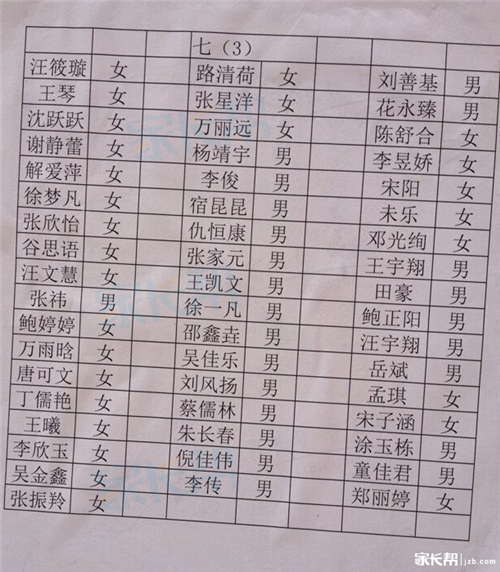 七（3）
汪筱璇 女 路清荷 女 刘善基 男
王琴 女 张星洋 女 花永臻 男
沈跃跃 女 万丽远 女 陈舒合 女
谢静蕾 女 杨靖宇 男 李昱娇 女
解爱萍 女 李俊 男 宋阳 女
徐梦凡 女 宿昆昆 男 未乐 女
张欣怡 女 仇恒康 男 邓光绚 女
谷思语 女 张家元 男 王宇翔 男
汪文慧 女 王凯文 男 田豪 男
张祎 男 徐一凡 男 鲍正阳 男
鲍婷婷 女 邵鑫垚 男 汪宇翔 男
万雨晗 女 吴佳乐 男 岳斌 男
唐可文 女 刘风扬 男 孟琪 女
丁儒艳 女 蔡儒林 男 宋子涵 女
王曦 女 朱长春 男 涂玉栋 男
李欣玉 女 倪佳伟 男 童佳君 男
吴金鑫 女 李传 男 郑丽婷 女
张振羚 女
家长帮 jzb.com